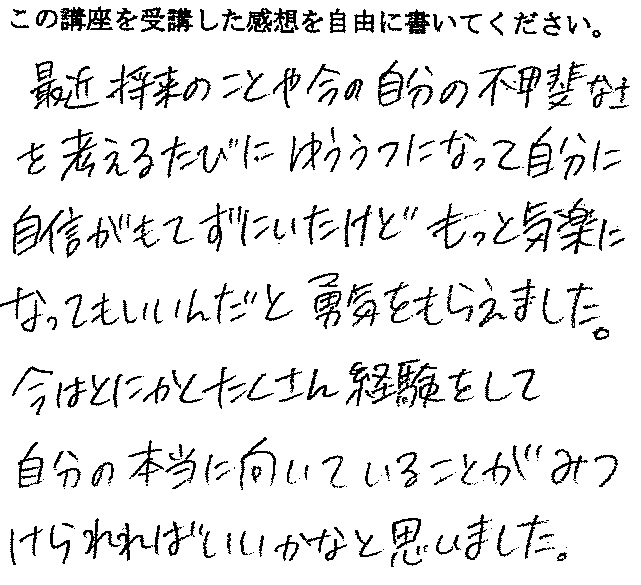 この講座を受講した感想を自由に書いてください。
最近将来のことや今の自分の不甲斐なさ
を考えるたびにゆううつになって自分に
自信がもてずにいたけどもっと気楽に
なってもいいんだと勇気をもらえました。
今はとにかくたくさん経験をして
自分の本当に向いていることがみつ
けられればいいかなと思いました。